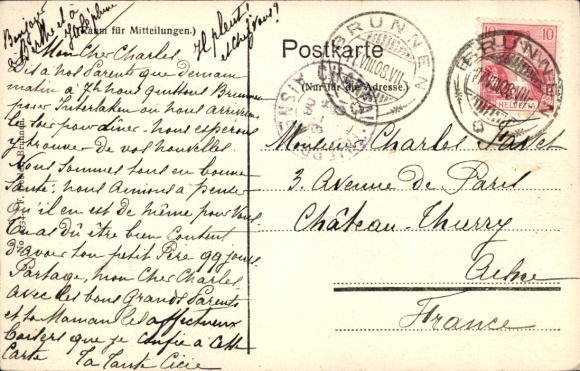 Bonjour
à Berthe et à
Joséphine
Il pleut!
et chez vous?
(Raum für Mitteilungen.)
Postkarte
(Nur für die Adresse.)
BRUNNEN
VIII.08.VII
10
HELVETIA
BRUNNEN
VIII.08.VII
CHATEAU-THIERRY
AISNE
Mon Cher Charles
Dis à nos Parents que demain
matin à 7h nous quittons Brunnen
pour Interlaken où nous arrivons
le soir pour dîner. nous espérons
y trouver de vos nouvelles.
Nous sommes tous en bonne
Santé, nous aimons à penser
qu'il en est de même pour Vous.
Tu as dû être bien Content
d'avoir ton petit Père qq jours.
Partage, mon Cher Charles,
avec les bons Grands Parents
et ta Maman les affectueux
baisers que je confie à cette
Carte
Ta Tante Cicie
Monsieur Charles
3, Avenue de Paris
Château-Thierry
Aisne
France